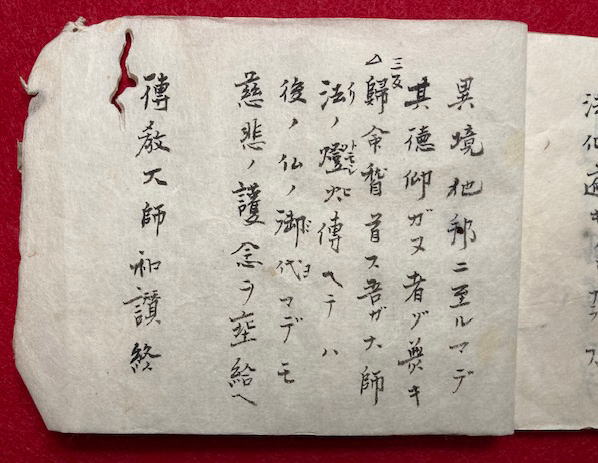 異境他邦ニ至ルマデ
其徳仰ガヌ者ゾキ
三反
△歸命稽首ス吾ガ大師
法ノ燈火傳ヘテハ
後ノ仏ノ御代マデモ
慈悲ノ護念ヲ埀給ヘ
傳教大師和讃終